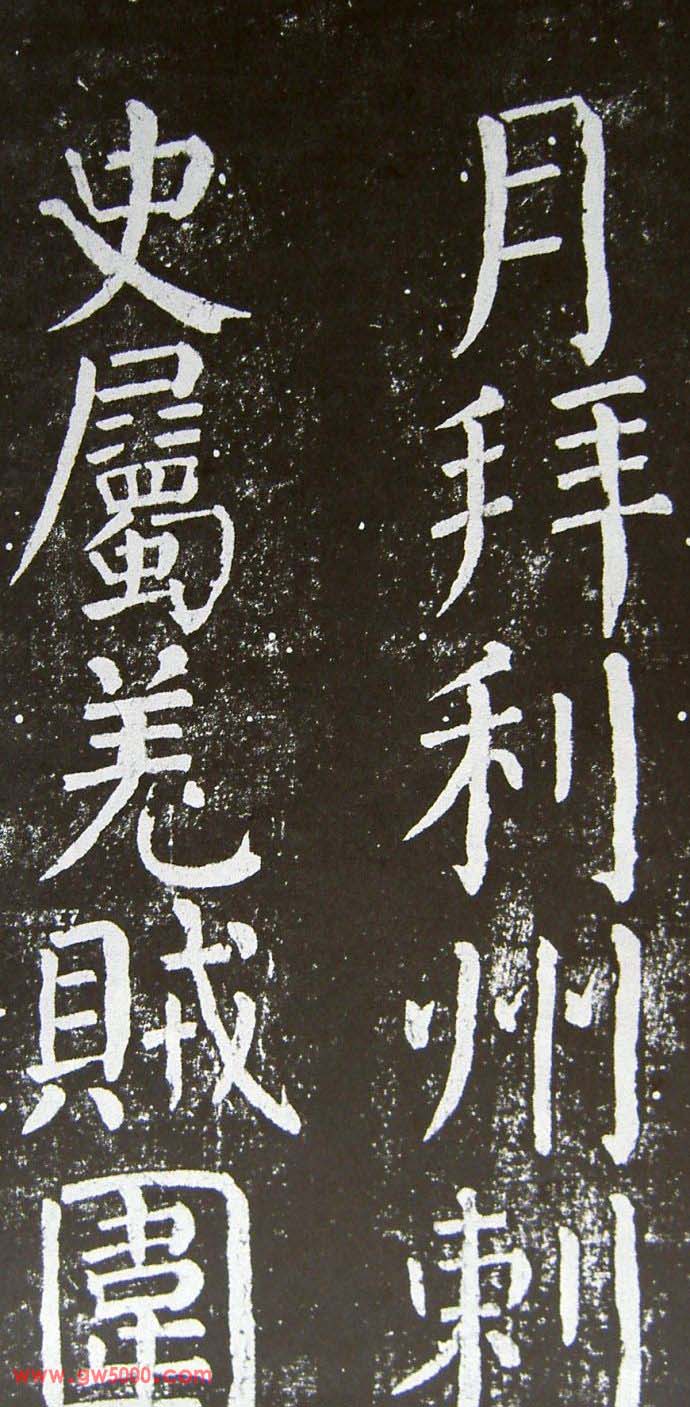 月拜利州刺
史屬羌賊圍
www.gw5000.com